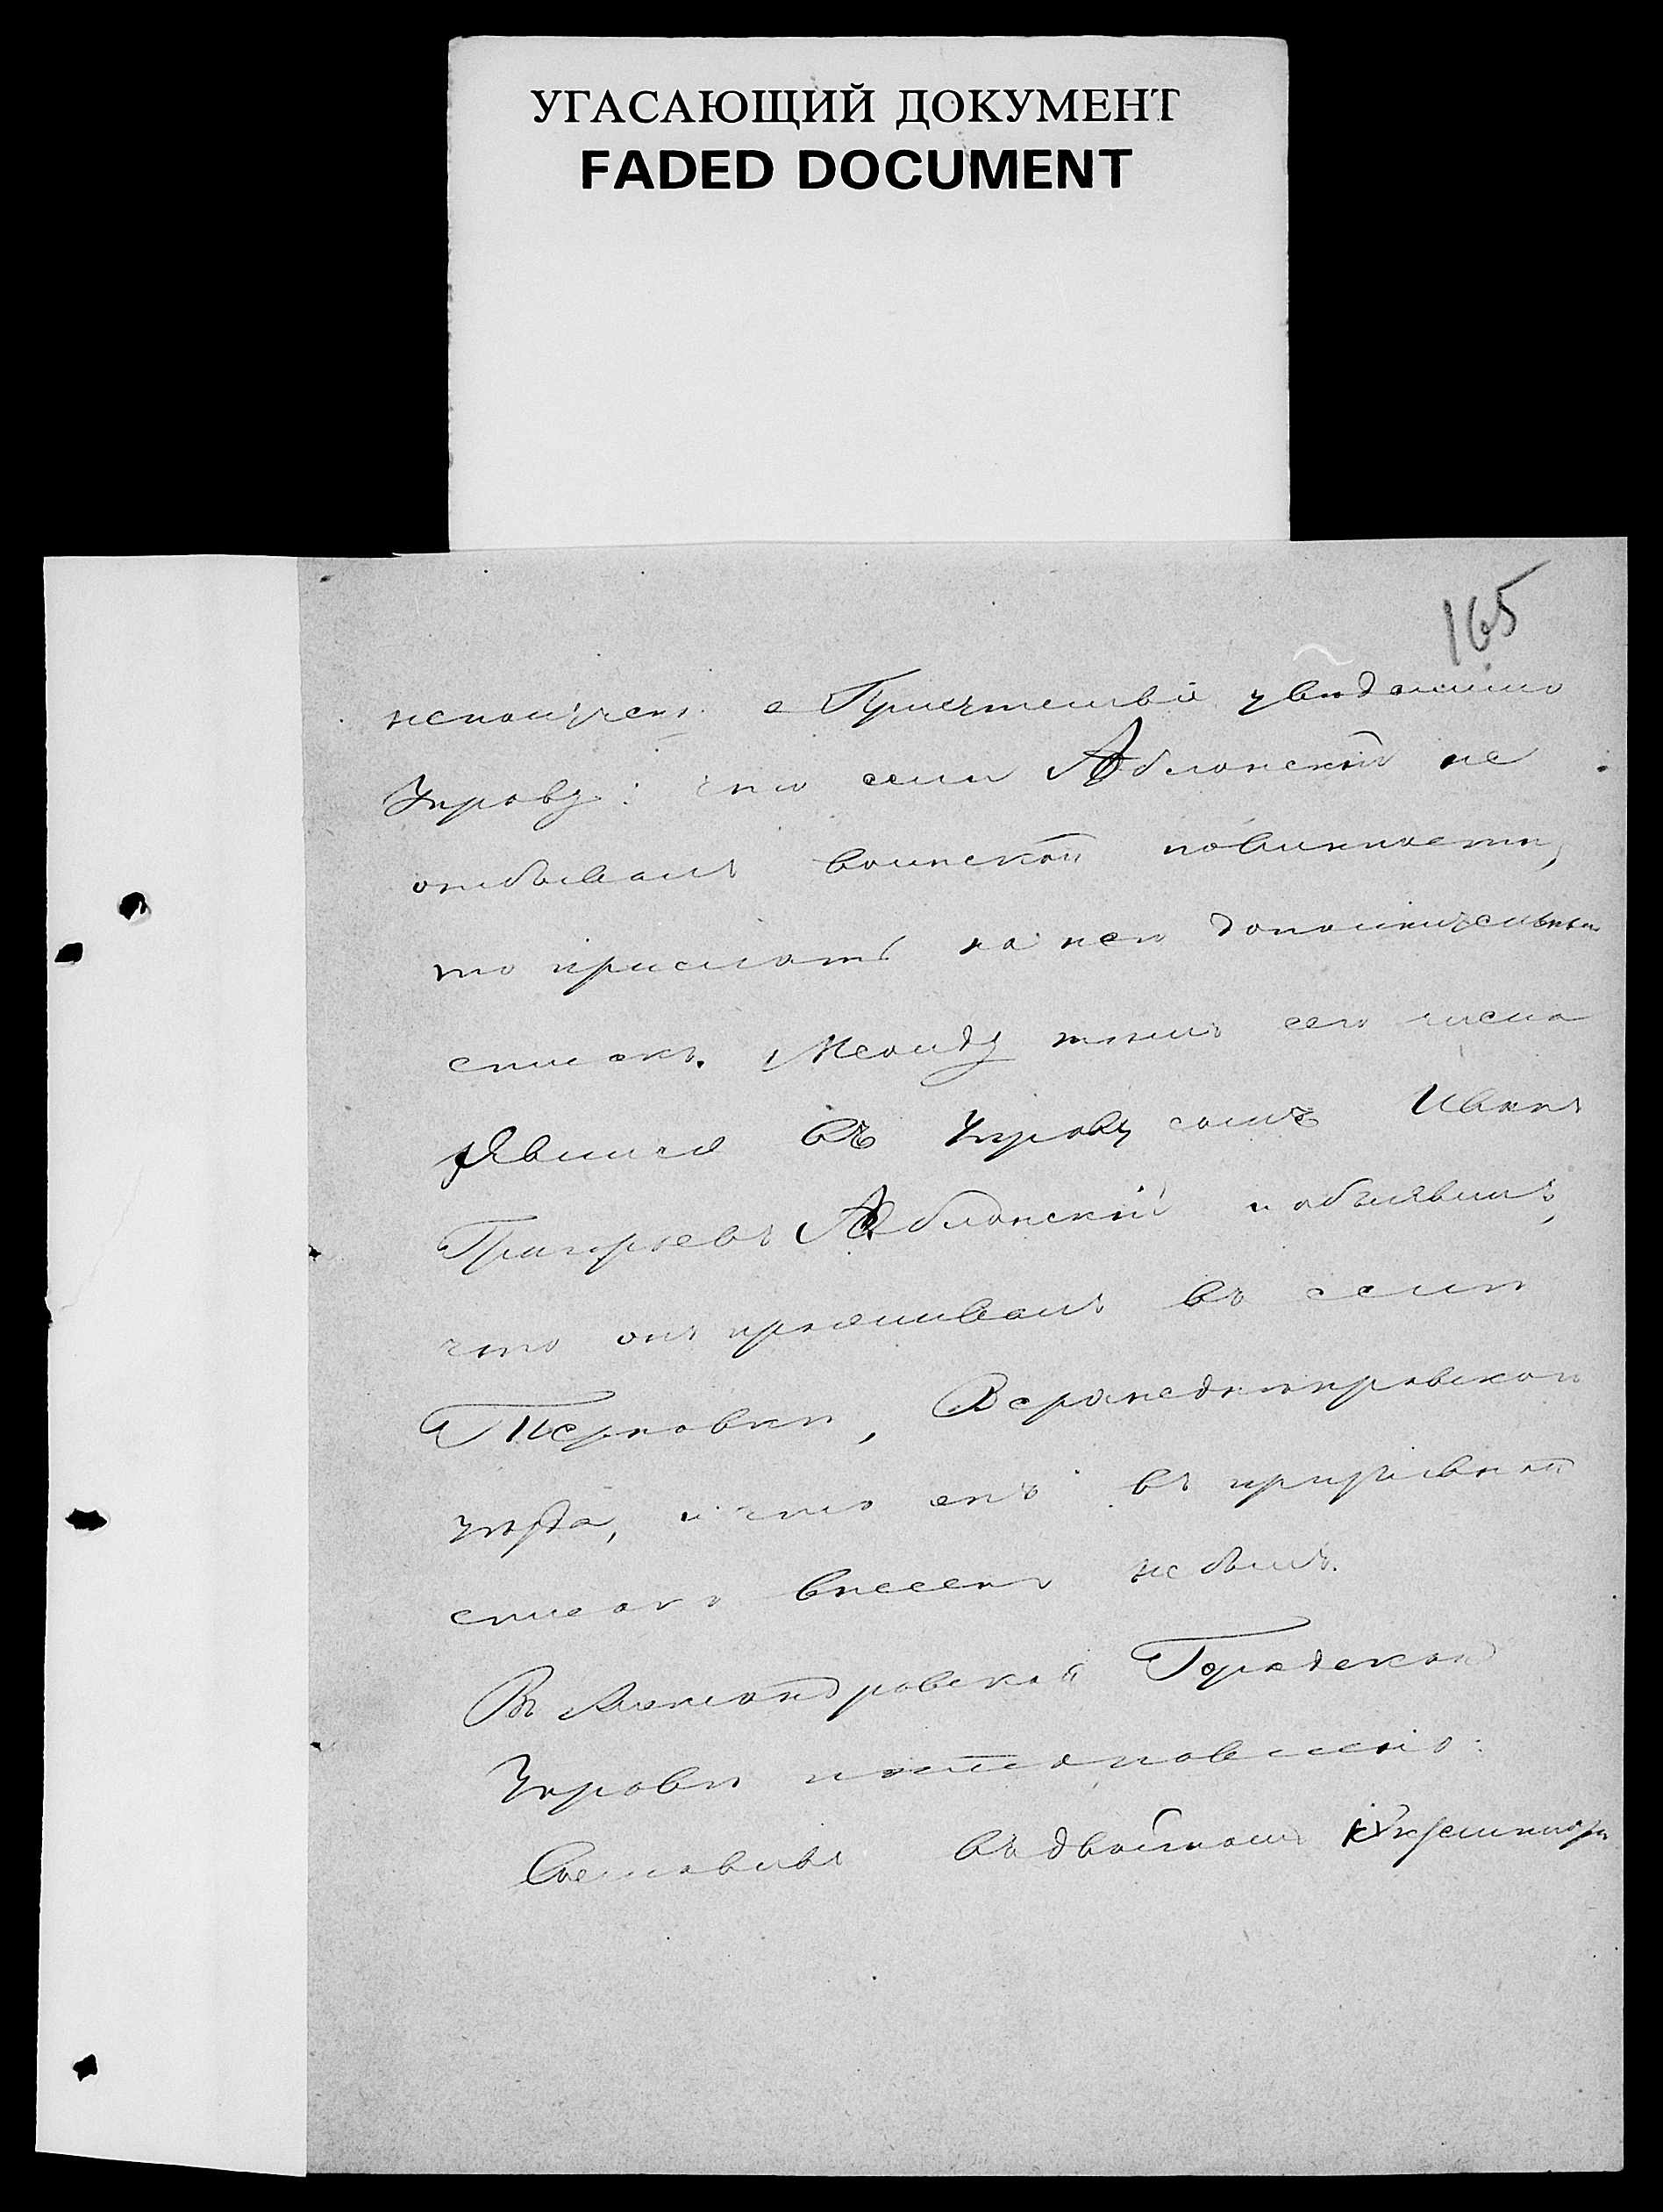 УГАСАЮЩИЙ ДОКУМЕНТ
FADED DOCUMENT
165
а Присутствіе увѣдомило
Управу: что если Яблонскій не
отбывалъ воинской повинности,
то прислать на него дополнительный
списокъ. Между тѣмъ сего числа
Явился въ Управу самъ Иванъ
Григорьевъ Яблонскій и объявилъ,
что онъ проживалъ въ селѣ
Терновкѣ, Верхнеднѣпровскаго
уѣзда, и что онъ въ призывной
списокъ внесенъ не былъ.
Въ Александровской Городской
Управѣ постановлено:
Составивъ въ двойномъ Экземплярѣ